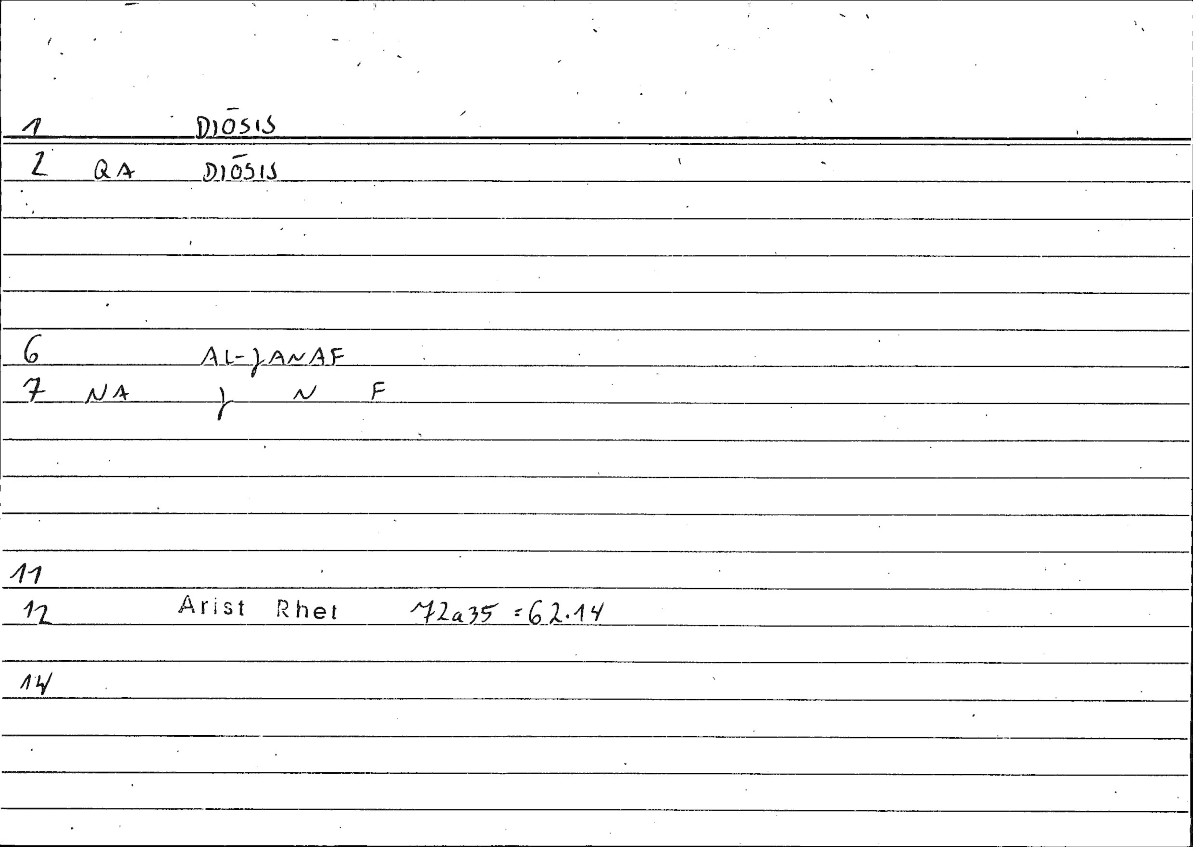 1 DIŌSIS
2 QA DIŌSIS
6 AL-}ANAF
7 NA } N F
11
12 Arist Rhet 72a35 =62.14
14